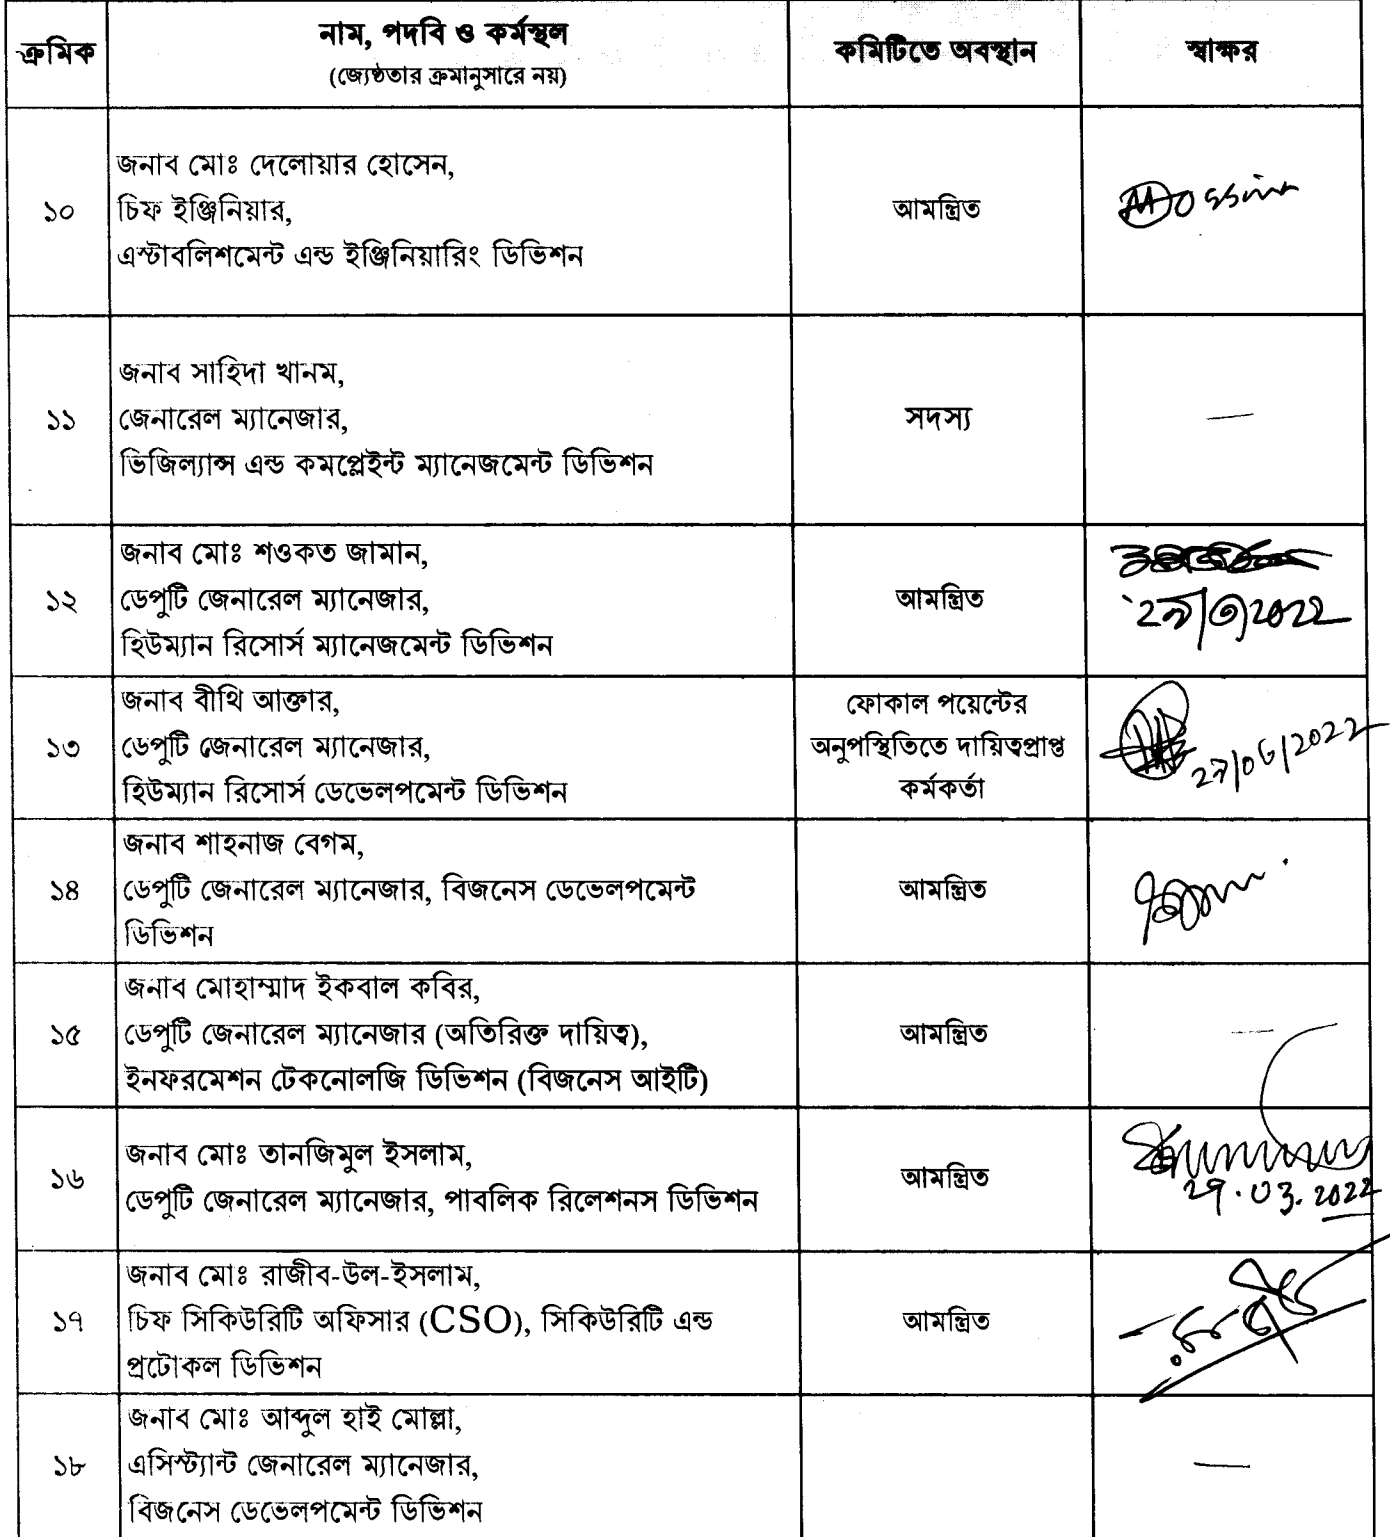 ক্রমিক
নাম, পদবি ও কর্মস্থল
(জ্যেষ্ঠতার ক্রমানুসারে নয়)
কমিটিতে অবস্থান
স্বাক্ষর
১০
জনাব মোঃ দেলোয়ার হোসেন,
চিফ ইঞ্জিনিয়ার,
এস্টাবলিশমেন্ট এন্ড ইঞ্জিনিয়ারিং ডিভিশন
আমন্ত্রিত
১১
জনাব সাহিদা খানম,
জেনারেল ম্যানেজার,
ভিজিল্যান্স এন্ড কমপ্লেইন্ট ম্যানেজমেন্ট ডিভিশন
সদস্য
—
১২
জনাব মোঃ শওকত জামান,
ডেপুটি জেনারেল ম্যানেজার,
হিউম্যান রিসোর্স ম্যানেজমেন্ট ডিভিশন
আমন্ত্রিত
১৩
জনাব বীথি আক্তার,
ডেপুটি জেনারেল ম্যানেজার,
হিউম্যান রিসোর্স ডেভেলপমেন্ট ডিভিশন
ফোকাল পয়েন্টের
অনুপস্থিতিতে দায়িত্বপ্রাপ্ত
কর্মকর্তা
১৪
জনাব শাহনাজ বেগম,
ডেপুটি জেনারেল ম্যানেজার, বিজনেস ডেভেলপমেন্ট
ডিভিশন
আমন্ত্রিত
১৫
জনাব মোহাম্মাদ ইকবাল কবির,
ডেপুটি জেনারেল ম্যানেজার (অতিরিক্ত দায়িত্ব),
ইনফরমেশন টেকনোলজি ডিভিশন (বিজনেস আইটি)
আমন্ত্রিত
—
১৬
জনাব মোঃ তানজিমুল ইসলাম,
ডেপুটি জেনারেল ম্যানেজার, পাবলিক রিলেশনস ডিভিশন
আমন্ত্রিত
১৭
জনাব মোঃ রাজীব-উল-ইসলাম,
চিফ সিকিউরিটি অফিসার (CSO), সিকিউরিটি এন্ড
প্রটোকল ডিভিশন
আমন্ত্রিত
১৮
জনাব মোঃ আব্দুল হাই মোল্লা,
এসিস্ট্যান্ট জেনারেল ম্যানেজার,
বিজনেস ডেভেলপমেন্ট ডিভিশন
—